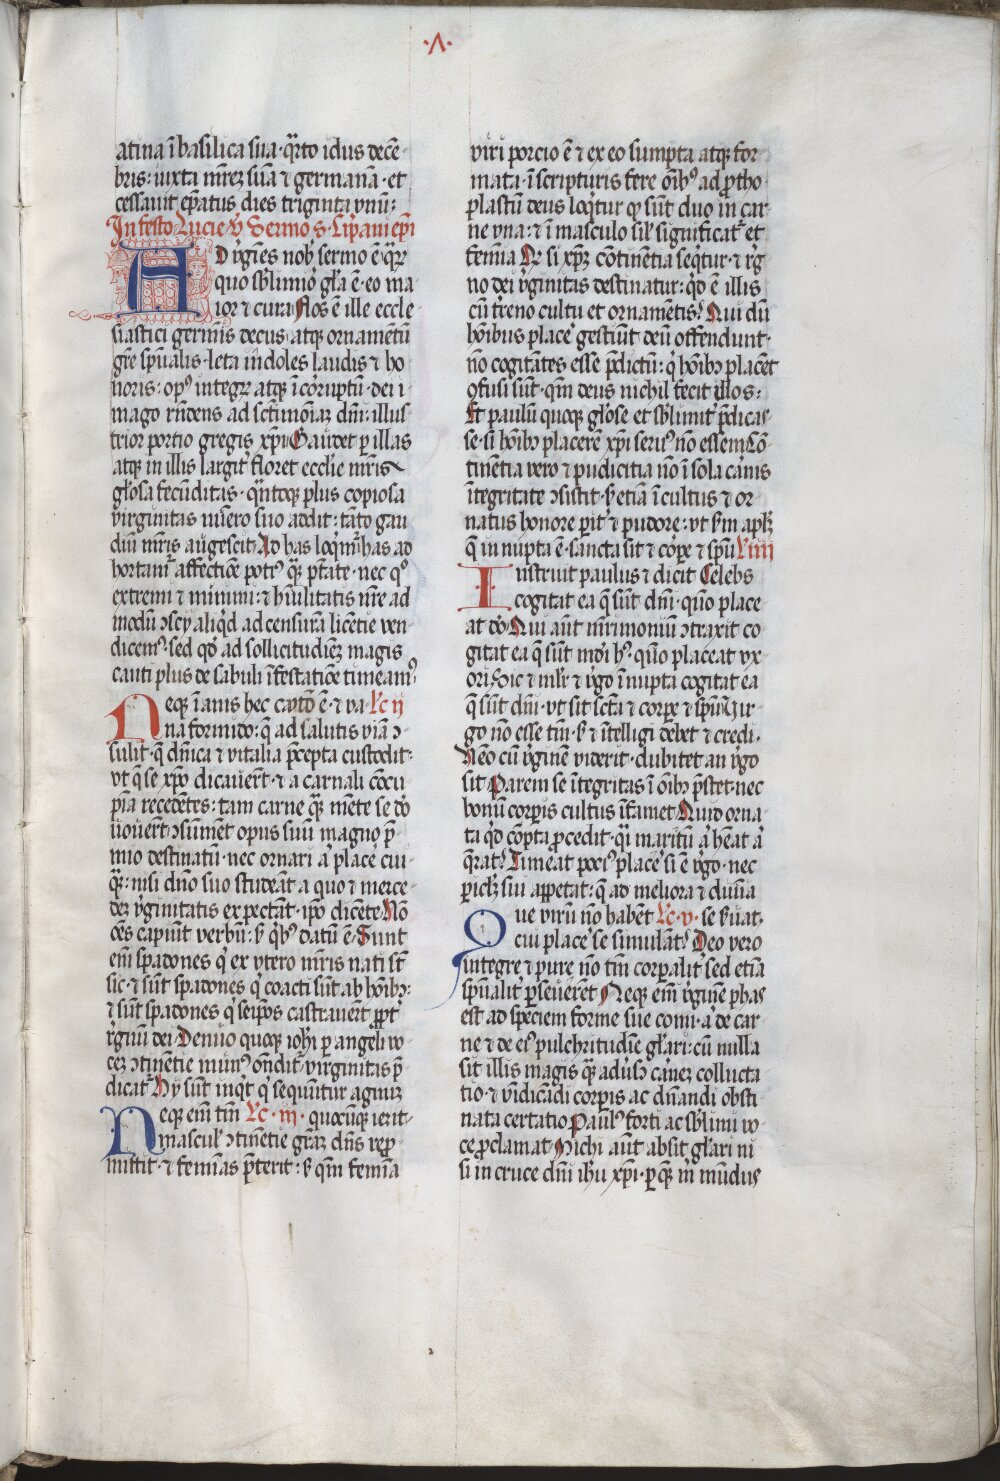 ·V·
atina ĩ basilica sua· q̃rto idus decẽ
bris: iuxta m̃reʒ suã ⁊ germanã· et
cessauit ep̃atus dies triginta vnũ:
In festo Lucie v̾ Sermo s· Cip̃ani ep̃i
AD v̾gĩes nob̾ sermo ẽ· q̃ꝝ
quo sb̾limior̾ gl̃a ẽ· eo ma
ior ⁊ cura flos ẽ ille eccle
siastici germĩs decus· atqꝫ ornamẽtũ
gr̃e sp̃ualis· leta indoles laudis ⁊ ho
noris: op⁹ integꝝ atqꝫ ĩcorruptũ· dei i
mago rñdens ad sc̃timõiaꝫ dñi: illus
trior portio gregis xp̃i Gaudet ꝑ illas
atqꝫ in illis largit̾ floret eccl̃ie mr̃is
gl̃osa fecũditas· q̃ntoqꝫ plus copiosa
virginitas nũero suo addit: tãto gau
diũ mr̃is augescit Ad has loq̃m̾ has ad
hortam̾ affectiõe poti⁹ q̃ꝫ ptãte· nec q⁹
extremi ⁊ minimi: ⁊ hũilitatis nr̃e ad
modũ ↄscij aliq̾d ad censurã licẽtie ven
dicem⁹: sed qd̾ ad sollicitudiẽꝫ magis
cauti plus de ʒabuli ĩfestatiõe timeam⁹
Neqꝫ ĩanis hec cautõ ẽ· ⁊ va Lc̃ ij
na formido: q̃ ad salutis viã ↄ
sulit· q̃ dñica ⁊ vitalia p̃cepta custodit·
vt q̃ se xp̃o dicauer̃t· ⁊ a carnali cõcu
p̃ia recedẽtes: tam carne q̃ꝫ mẽte se dõ
uouer̃t ↄsũmẽt opus suũ magno p̃
mio destinatũ· nec ornari a̾ place̾ cui
q̃ꝫ: nisi dño suo studeãt a quo ⁊ merce
deꝫ v̾ginitatis expectãt· ip̃o dicẽte Nõ
oẽs capiũt verbũ: s̾ q̾b⁹ datũ ẽ· Sunt
eñi spadones q̾ ex vtero mr̃is nati st̃
sic· ⁊ sũt spadones q̾ coacti sũt ab hoĩbꝫ:
⁊ sũt spadones q̾ seip̃os castrauer̃t ꝓpt̾
r̾gnũ dei· Denuo quoqꝫ ioh̾i ꝑ angeli vo
ceꝫ ↄtinẽtie mun⁹ oñdit̾· virginitas p̃
dicat̾ Hij sũt inq̾t q̾ sequũtur agnuꝫ
Neqꝫ eñi tm̃ Lc̃· iij· quocũqꝫ ierit·
mascul̾ ↄtinẽtie gr̃aꝫ dñs rep̃
mittit· ⁊ femĩas p̃terit: s̾ qm̃ femĩa
viri porcio ẽ ⁊ ex eo sumpta atqꝫ for
mata· ĩ scripturis fere oĩb⁹ ad ꝓtho
plastũ deus loq̾tur qꝛ sũt duo in car
ne vna: ⁊ ĩ masculo sil̾ significat̾ et
femĩa Qꝛ si xp̃ꝫ cõtinẽtia seq̾tur· ⁊ r̾g
no dei v̾ginitas destinatur: qd̾ ẽ illis
cũ tr̾eno cultu et ornamẽtis? Qui dũ
hoĩbus place̾ gestiũt deũ offendunt·
nõ cogitãtes esse p̃dictũ: q̾ hoĩbꝫ placẽt
ↄfusi sũt· qm̃ deus nichil fecit illos:
Et paulũ quoqꝫ gl̾ose et sb̾limit̾ p̃dicas
se· si hoĩbꝫ placerẽ xp̃i seru⁹ nõ essem Cõ
tinẽtia vero ⁊ pudicitia nõ ĩ sola carnis
ĩtegritate ↄsistit· s̾ etiã ĩ cultus ⁊ or
natus honore parit̾ ⁊ pudore: vt s̾m ap̃lꝫ
q̃ innupta ẽ· sancta sit ⁊ corꝑe ⁊ sp̃u Lc̾ iiij
Instruit paulus ⁊ dicit Celebs
cogitat ea q̃ sũt dñi· quõ place
at dõ Qui aũt mr̃imoniũ ↄtraxit co
gitat ea q̃ sũt mõi h⁹· quõ placeat vx
ori· Sic ⁊ ml̾r ⁊ v̾go ĩnupta cogitat ea
q̃ sũt dñi· vt sit sc̃a ⁊ corꝑe ⁊ sp̃u Vir
go nõ esse tm̃· s̾ ⁊ ĩtelligi debet ⁊ credi·
Nẽo cũ v̾ginẽ viderit· dubitet an v̾go
sit Parem se ĩtegritas ĩ oĩbꝫ p̃stet· nec
bonũ corꝑis cultus ĩfamet Quid orna
ta qd̾ cõpta ꝓcedit· q̾i maritũ a̾ h̾eat a̾
q̃rat? Timeat poci⁹ place̾ si ẽ v̾go· nec
ꝑiclꝫ sui appetat: q̃ ad meliora ⁊ diuĩa
Que virũ nõ habẽt Lc̃· v· se s̾uat·
cui place̾ se simulãt? Deo vero
integre ⁊ pure nõ tm̃ corꝑalit̾ sed etiã
sp̃ualit̾ ꝑseuerẽt Neqꝫ eñi v̾ginẽ phas
est ad speciem forme sue comi· a̾ de car
ne ⁊ de ei⁹ pulchritudĩe gl̾ari: cũ nulla
sit illis magis q̃ꝫ adu̾s⁹ carneꝫ collucta
tio· ⁊ vĩdicãdi corꝑis ac dñandi obsti
nata certatio Paul⁹ forti ac sb̾limi vo
ce ꝓclamat· Michi aũt absit gl̾ari ni
si in cruce dñi ih̾u xp̃i· ꝑ qꝫ m̾ mũdus